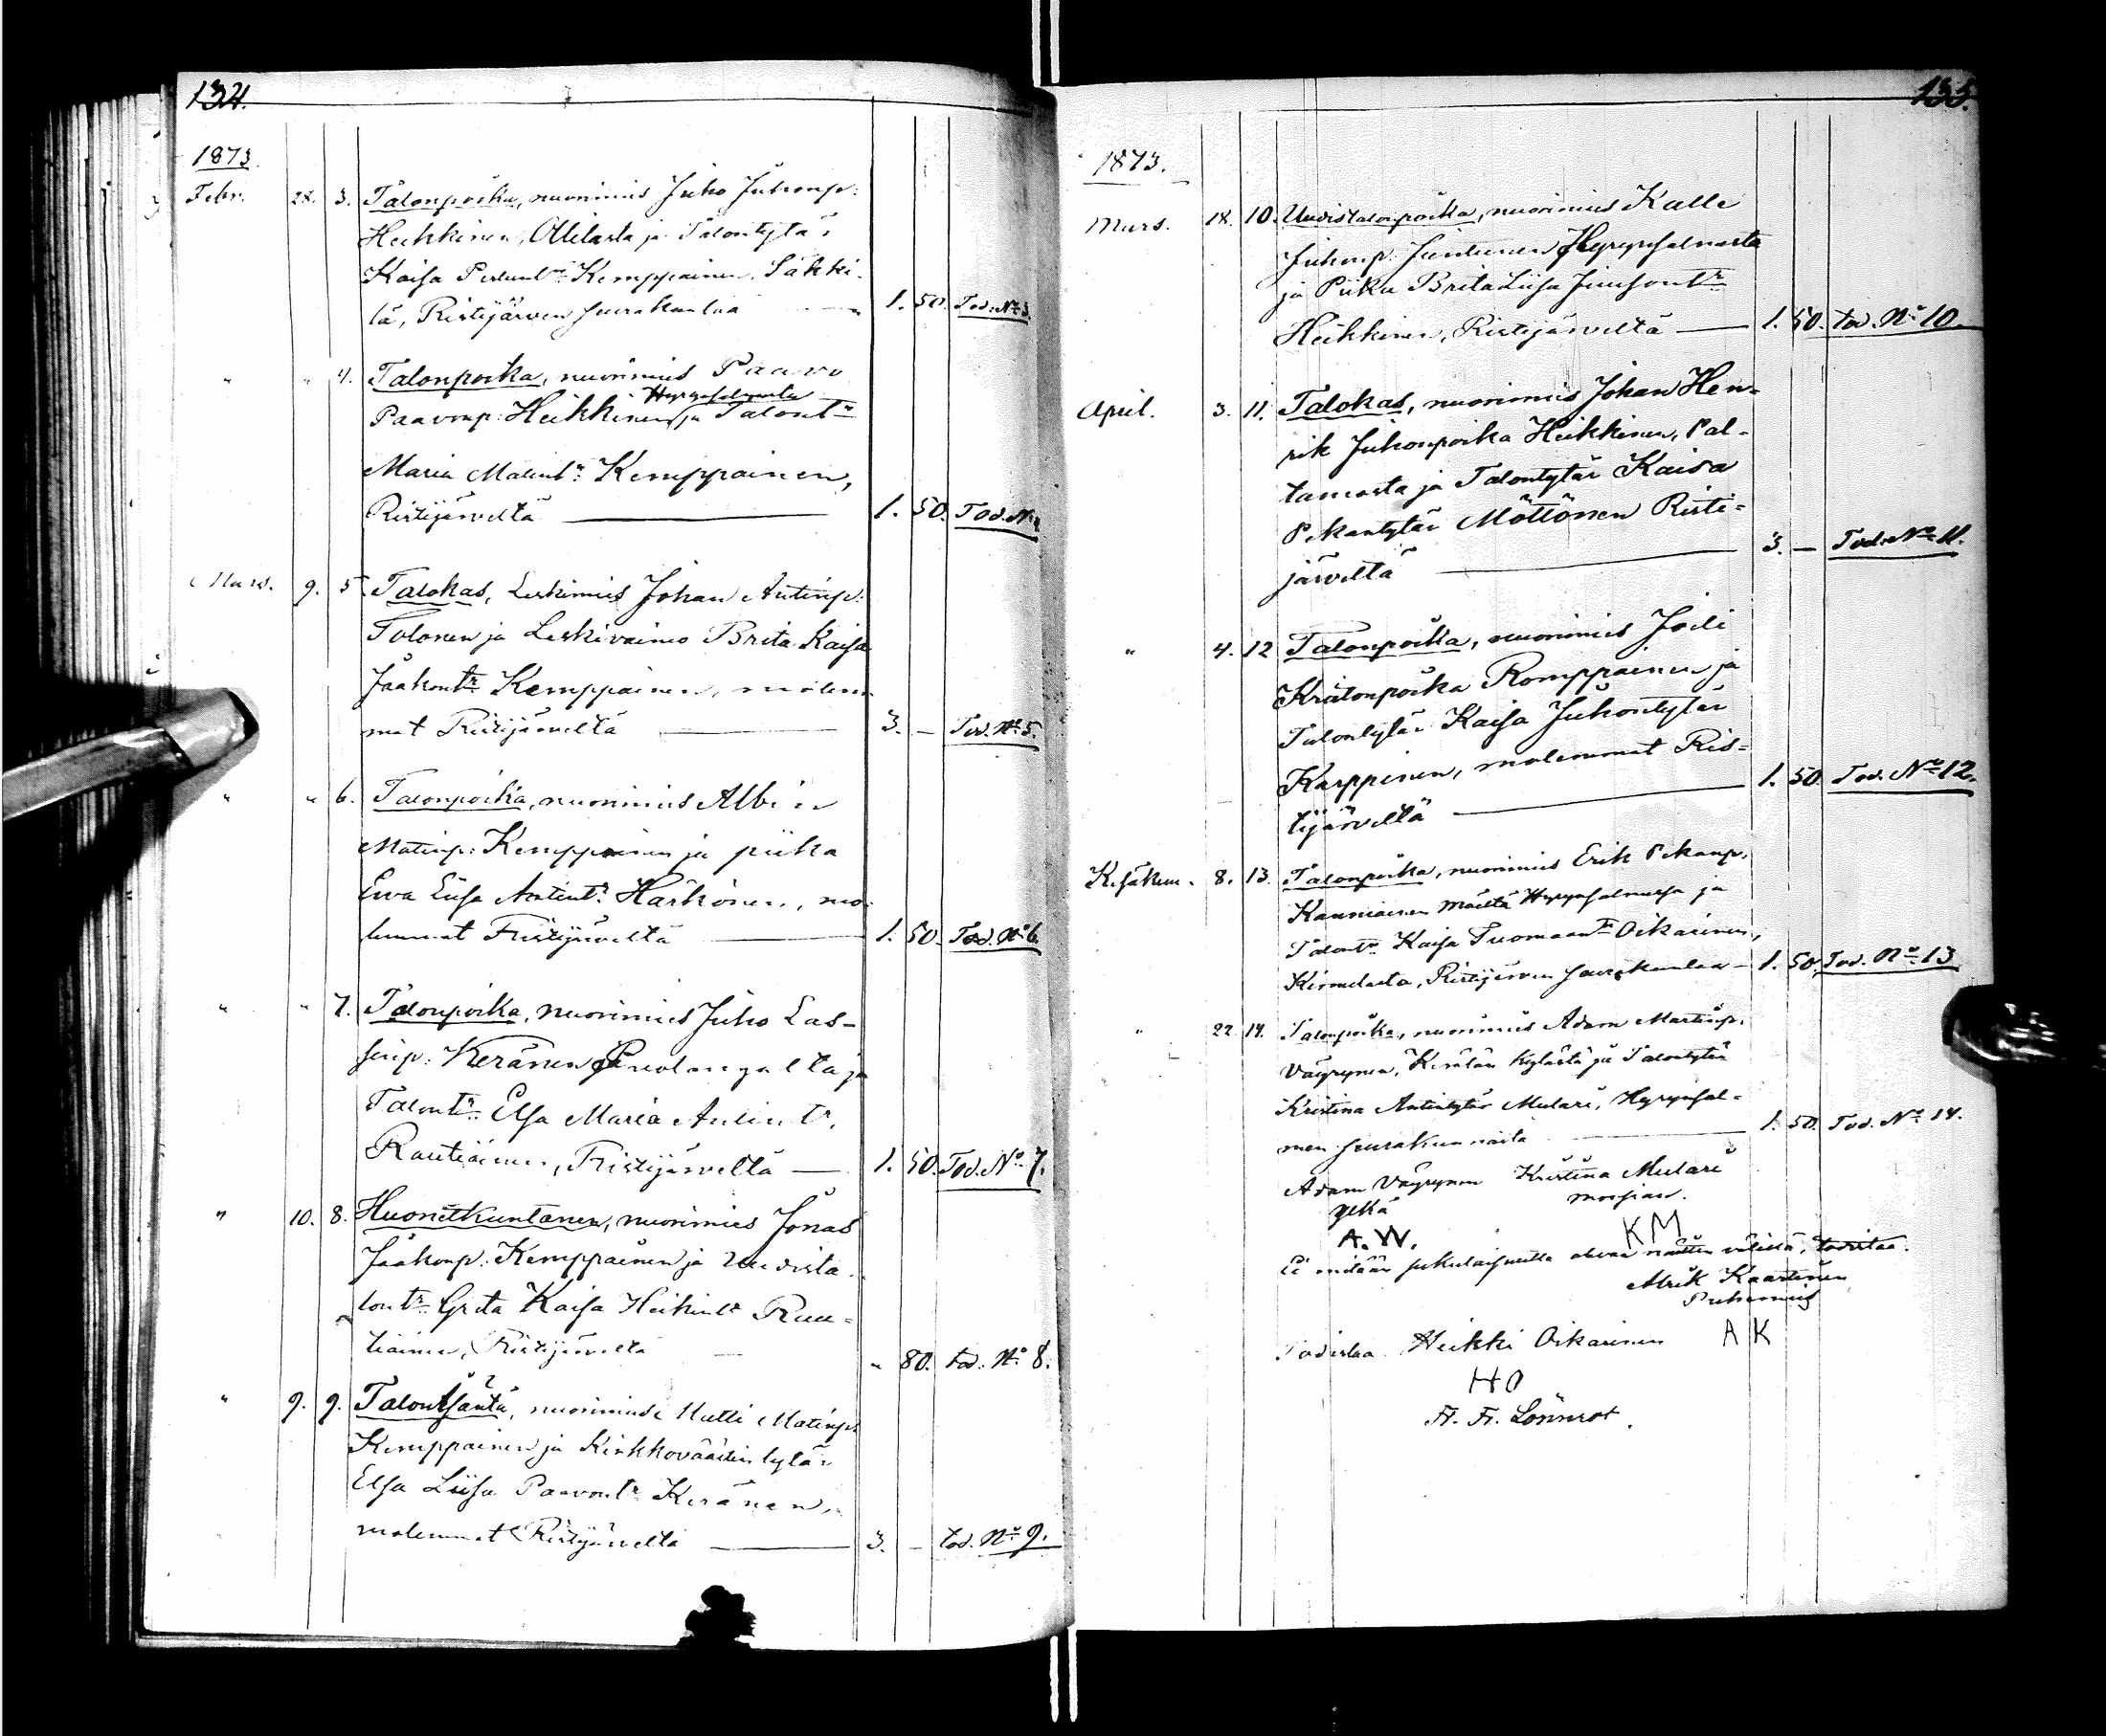 134.
1873.
Febr. 28. 3. Talonpoika, nuorimies Juho Juhonp:
Heikkinen, ja Talontytär
Kaisa Kemppainen, Säkki-
lä, Ristijärven seurakuntaa 1. 50. Tod. No 3.
" " 4. Talonpoika, nuorimies Paavo
Hyrynsalmelta
Paavonp: Heikkinen ja Talontr
Maria Matintr Kemppainen,
Ristijärveltä 1. 50. Tod. No 4
Mars. 9. 5. Talokas, Leskimies Johan Antinp:
Tolonen ja Leskivaimo Brita Kaisa
Jaakontr Kemppainen, molem-
mat Ristijärveltä 3. — Tod. No 5.
" " 6. Talonpoika, nuorimies Albin
Matinp: Kemppainen ja piika
Ewa Liisa Antintr Härkönen, mo-
lemmat Ristijärveltä 1. 50. Tod. No 6.
" " 7. Talonpoika, nuorimies Juho Las-
sinp: Keränen Puolangalta ja
Talontr Elsa Maria Antintr
Rautiainen, Ristijärveltä — 1. 50. Tod. No 7.
" 10. 8. Huonetkuntanen, nuorimies Jonas
Jaakonp: Kemppainen ja Uudista-
lontr Greta Kaisa Heikintr Rau-
tiainen, Ristijärveltä — " 80. tod. No 8.
" 9. 9. Talonisäntä, nuorimies Matti Matinp:
Kemppainen ja Kirkkoväärtin tytär
Elsa Liisa Paavontr Keränen,
molemmat Ristijärveltä 3. — tod. No 9.
135.
1873.
Mars. 18. 10. Uudistalonpoika, nuorimies Kalle
Juhonp. Juntunen Hyrynsalmelta
ja Piika Brita Liisa
Heikkinen, Ristijärveltä — 1. 50. tod. No 10.
April. 3. 11. Talokas, nuorimies Johan Hen-
rik Juhonpoika Heikkinen, Pal-
tamosta ja Talontytär Kaisa
Pekantytär Möttönen Risti-
järveltä 3. — Tod. No 11.
" 4. 12 Talonpoika, nuorimies
Romppainen ja
Talontytär Kaisa Juhontytär
Karppinen, molemmat Ris-
tijärveltä 1. 50. Tod. No 12.
Kesäkuu. 8. 13. Talonpoika, nuorimies Erik Pekanp.
Kauniainen Hyrynsalmelta ja
Talontr Kaisa Tuomaantr Oikarinen,
Ristijärven seurakuntaa — 1. 50. Tod. No 13
" 22. 14. Talonpoika, nuorimies Adam Martinp.
Väyrynen, Kerälän kylästä ja Talontytär
Kristina Antintytär Mulari, Hyrynsal-
men seurakunnasta 1. 50. Tod. No 14.
Adam Väyrynen Kristina Mulari
ylkä morsian.
A. W. KM
Ei mitään sukulaisuutta olevan näitten välissä, todistaa.
Kaartinen
Puhemies
Todistaa Heikki Oikarinen A K
H O
Fr. Fr. Lönnrot.